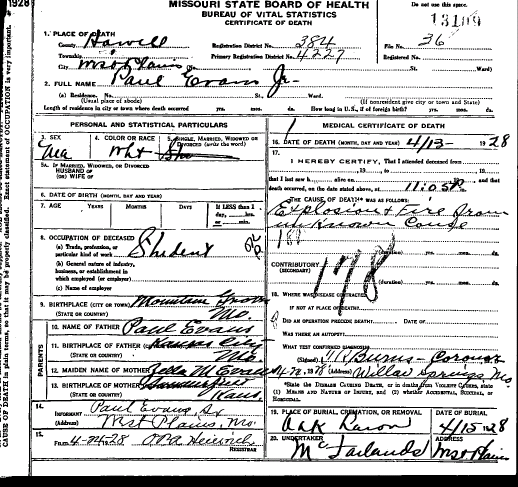 1928
MISSOURI STATE BOARD OF HEALTH
BUREAU OF VITAL STATISTICS
CERTIFICATE OF DEATH
Do not use this space.
13109
1. PLACE OF DEATH
County Howell Registration District No. 384 File No. 36
Township Primary Registration District No. 4227 Registered No.
City West Plains No. St. Ward)
2. FULL NAME Paul Evans Jr.
(a) Residence. No. St., Ward.
(Usual place of abode) (If nonresident give city or town and State)
Length of residence in city or town where death occurred yrs. mos. ds. How long in U.S., if of foreign birth? yrs. mos. ds.
PERSONAL AND STATISTICAL PARTICULARS
3. SEX
4. COLOR OR RACE Wht
5. SINGLE, MARRIED, WIDOWED OR DIVORCED (write the word)
5A. IF MARRIED, WIDOWED, OR DIVORCED
HUSBAND OF
(OR) WIFE OF
6. DATE OF BIRTH (MONTH, DAY AND YEAR)
7. AGE YEARS MONTHS DAYS If LESS than 1 day, hrs. or min.
8. OCCUPATION OF DECEASED
(a) Trade, profession, or particular kind of work Student
(b) General nature of industry, business, or establishment in which employed (or employer)
(c) Name of employer
9. BIRTHPLACE (CITY OR TOWN) Mountain Grove
(STATE OR COUNTRY) Mo.
PARENTS
10. NAME OF FATHER Paul Evans
11. BIRTHPLACE OF FATHER Kansas City
(STATE OR COUNTRY) Mo
12. MAIDEN NAME OF MOTHER
13. BIRTHPLACE OF MOTHER
(STATE OR COUNTRY) Kans.
14. INFORMANT Paul Evans Sr
(Address) West Plains, Mo
15. FILED 4-24-28
REGISTRAR
MEDICAL CERTIFICATE OF DEATH
16. DATE OF DEATH (MONTH, DAY AND YEAR) 4/13- 1928
17.
I HEREBY CERTIFY, That I attended deceased from
that I last saw h alive on and that
death occurred, on the date stated above, at 11:05 P.
THE CAUSE OF DEATH WAS AS FOLLOWS:
Explosion & Fire from
unknown Cause
(duration) yrs. mos. ds.
CONTRIBUTORY
(SECONDARY)
178
(duration) yrs. mos. ds.
18. WHERE WAS DISEASE CONTRACTED
IF NOT AT PLACE OF DEATH?
DID AN OPERATION PRECEDE DEATH? DATE OF
WAS THERE AN AUTOPSY?
WHAT TEST CONFIRMED DIAGNOSIS?
(Signed) Burns - Coroner
(Address) Willow Springs, Mo.
*State the DISEASE CAUSING DEATH, or in deaths from VIOLENT CAUSES, state (1) MEANS AND NATURE OF INJURY, and (2) whether ACCIDENTAL, SUICIDAL, or HOMICIDAL.
19. PLACE OF BURIAL, CREMATION, OR REMOVAL DATE OF BURIAL
Oak Lawn 4/15 1928
20. UNDERTAKER ADDRESS
McFarlands West Plains